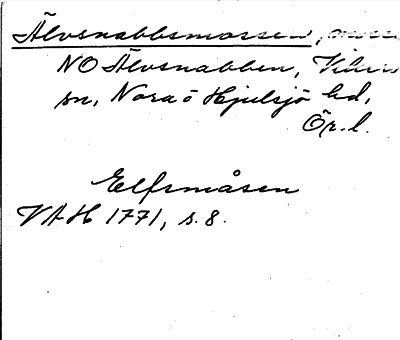 Älvsnabbsmossen,
NO Älvsnabben, Vikers
sn, Nora o Hjulsjö hd,
Ör. l.
Elfsmåsen
VAH 1771, s. 8.